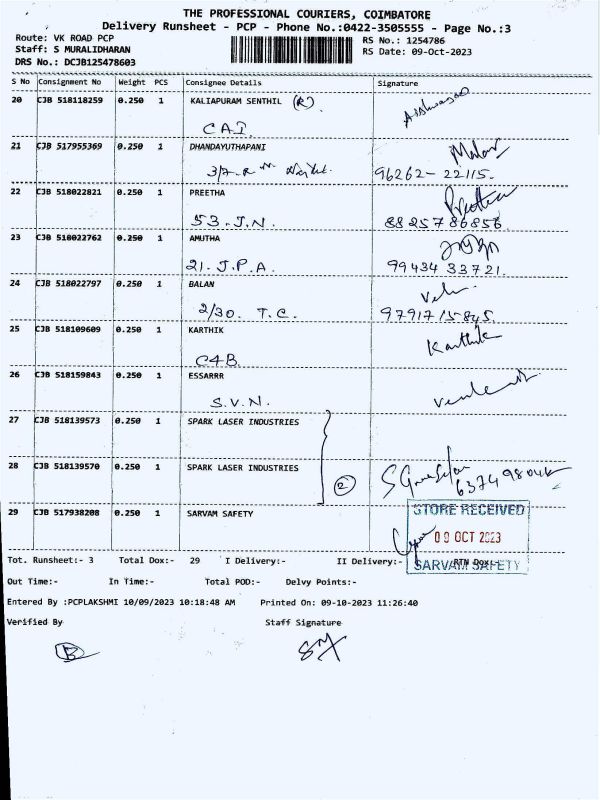 THE PROFESSIONAL COURIERS, COIMBATORE
Delivery Runsheet - PCP - Phone No.:0422-3505555 - Page No.:3
Route: VK ROAD PCP RS No.: 1254786
Staff: S MURALIDHARAN RS Date: 09-Oct-2023
DRS No.: DCJB125478603
S No Consignment No Weight PCS Consignee Details Signature
20 CJB 518118259 0.250 1 KALIAPURAM SENTHIL (R)
C A I.
21 CJB 517955369 0.250 1 DHANDAYUTHAPANI
3/7. R 96262-22115.
22 CJB 518022821 0.250 1 PREETHA Preetha
53. J.N. 8825786856
23 CJB 518022762 0.250 1 AMUTHA
21. J.P.A. 99434 33721.
24 CJB 518022797 0.250 1 BALAN
2/30. T.C. 9791715845.
25 CJB 518109609 0.250 1 KARTHIK Karthik
C4B
26 CJB 518159843 0.250 1 ESSARRR
S.V.N.
27 CJB 518139573 0.250 1 SPARK LASER INDUSTRIES
28 CJB 518139570 0.250 1 SPARK LASER INDUSTRIES
2
29 CJB 517938208 0.250 1 SARVAM SAFETY STORE RECEIVED
09 OCT 2023
Tot. Runsheet:- 3 Total Dox:- 29 I Delivery:- II Delivery:- RTN Dox:-
SARVAM SAFETY
Out Time:- In Time:- Total POD:- Delvy Points:-
Entered By :PCPLAKSHMI 10/09/2023 10:18:48 AM Printed On: 09-10-2023 11:26:40
Verified By Staff Signature
B